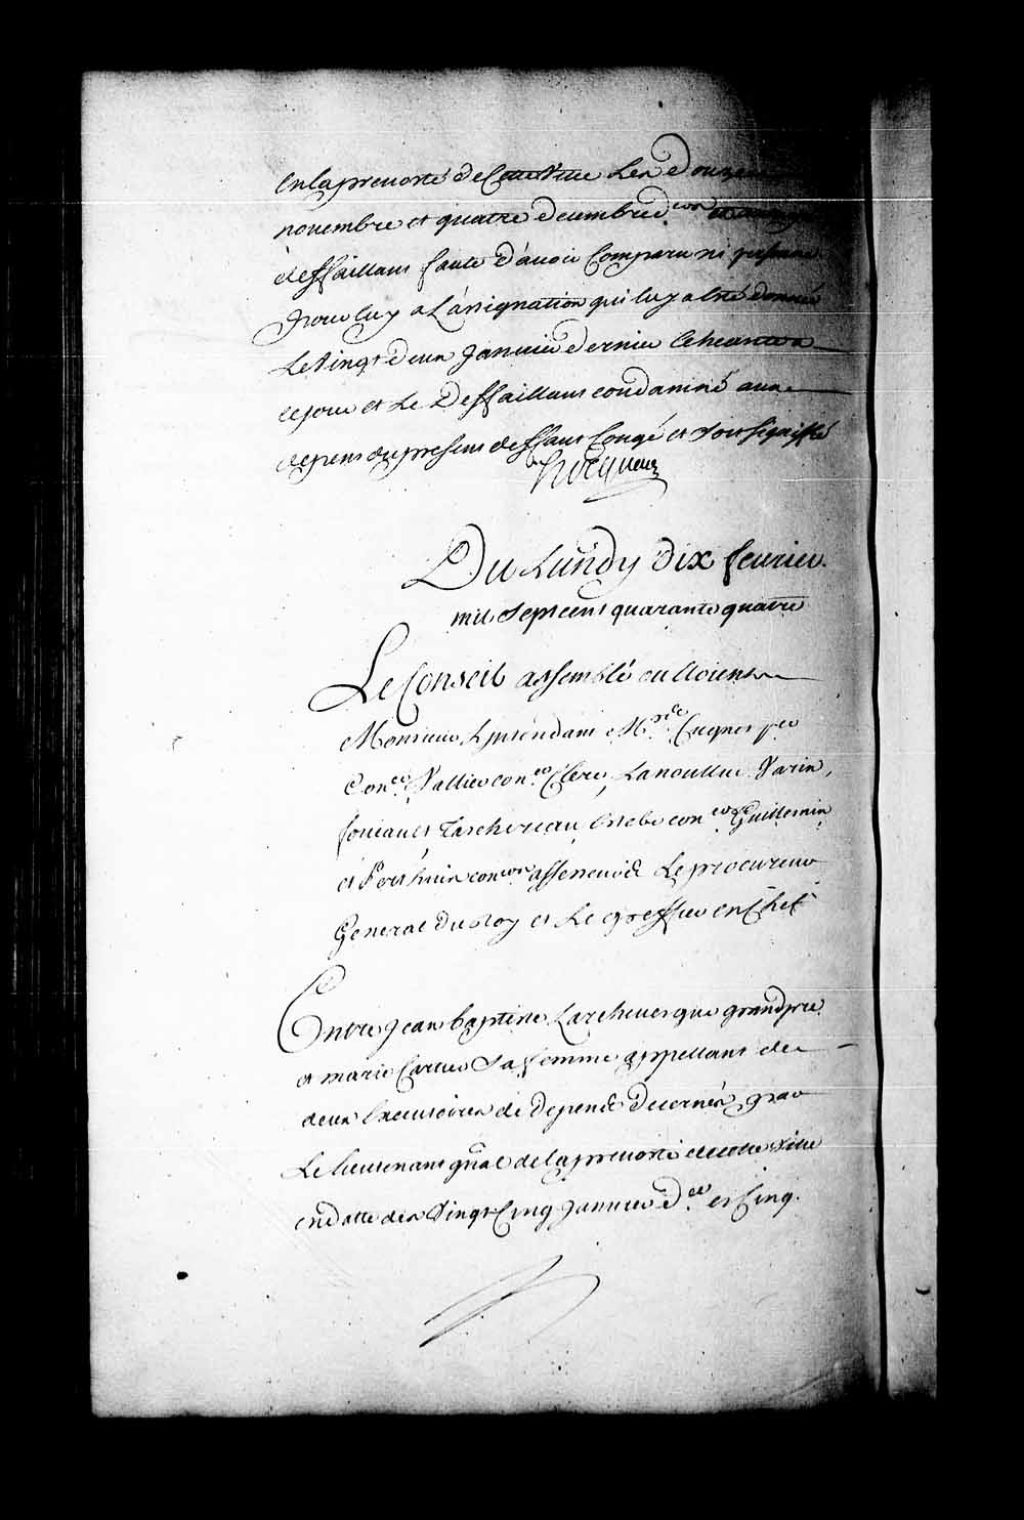 En la prevosté de Cette Ville Les Douze
novembre et quatre decembre d.ers
deffaillant faute d'avoir Comparu ni personne
pour luy a L'assignation qui luy a Eté donnée
Le Vingt deux Janvier dernier Echeante a
ce jour et Le Deffaillant condamné aux
depens du present deffaut Congé et soit signiffié
hocquart
Du Lundy Dix fevrier
mil Sept cent quarante quatre
Le Conseil assemblé ou Etoient
Monsieur L'jntendant M.rs de Cugnet p.er
Con.er Vallier con.er Clerc, Lanoullier Varin,
foucault Taschereau Estebe con.ers Guillemin
et Perthuis con.ers assesseurs Le procureur
General du Roy et Le greffier en Chef
Entre Jean baptiste Larchevesque grandpré
et marie Cartier Sa femme appellans de
deux Executoires de depens decernés par
Le Lieutenant gnal de la prevosté de cette Ville
en datte des Vingt Cinq Janvier d.er et Cinq.